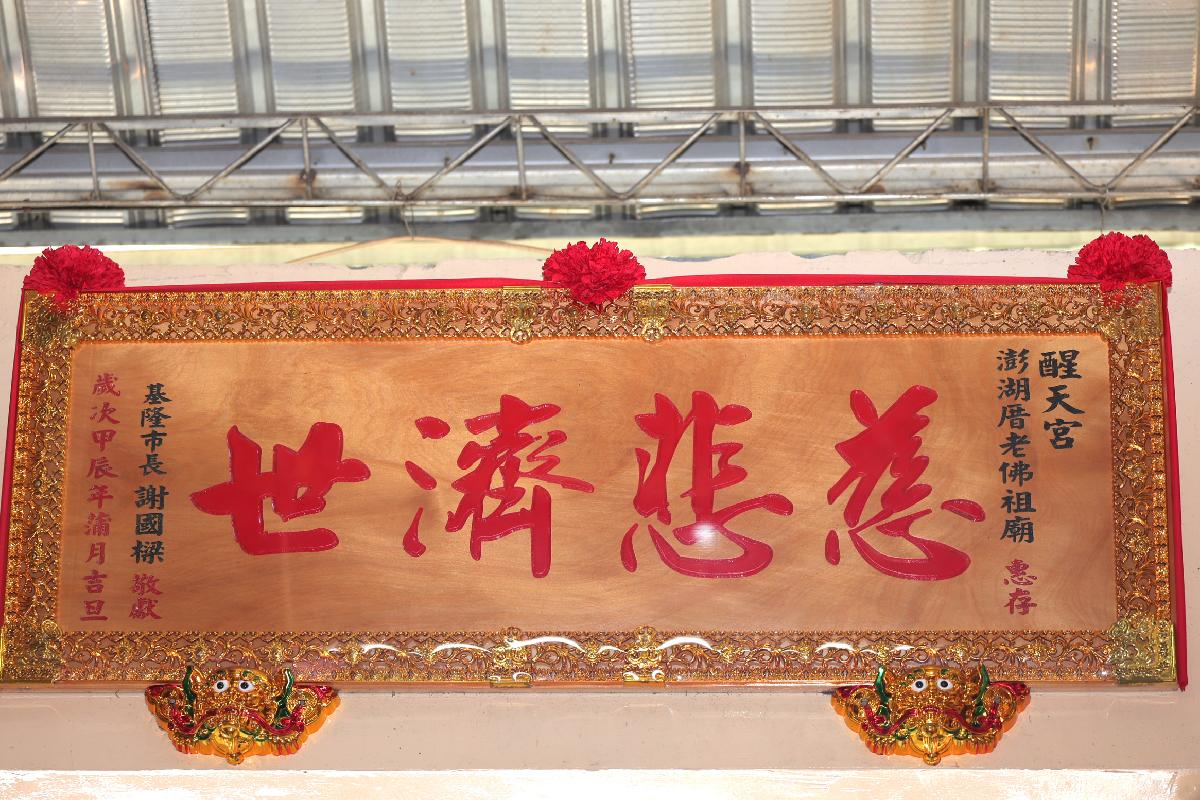 醒天宮
澎湖厝老佛祖廟 惠存
慈悲濟世
基隆市長 謝國樑 敬獻
歲次甲辰年蒲月吉旦